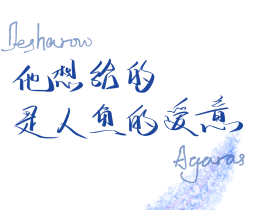 Desharow
他想给的
是人鱼的爱意
Agaras